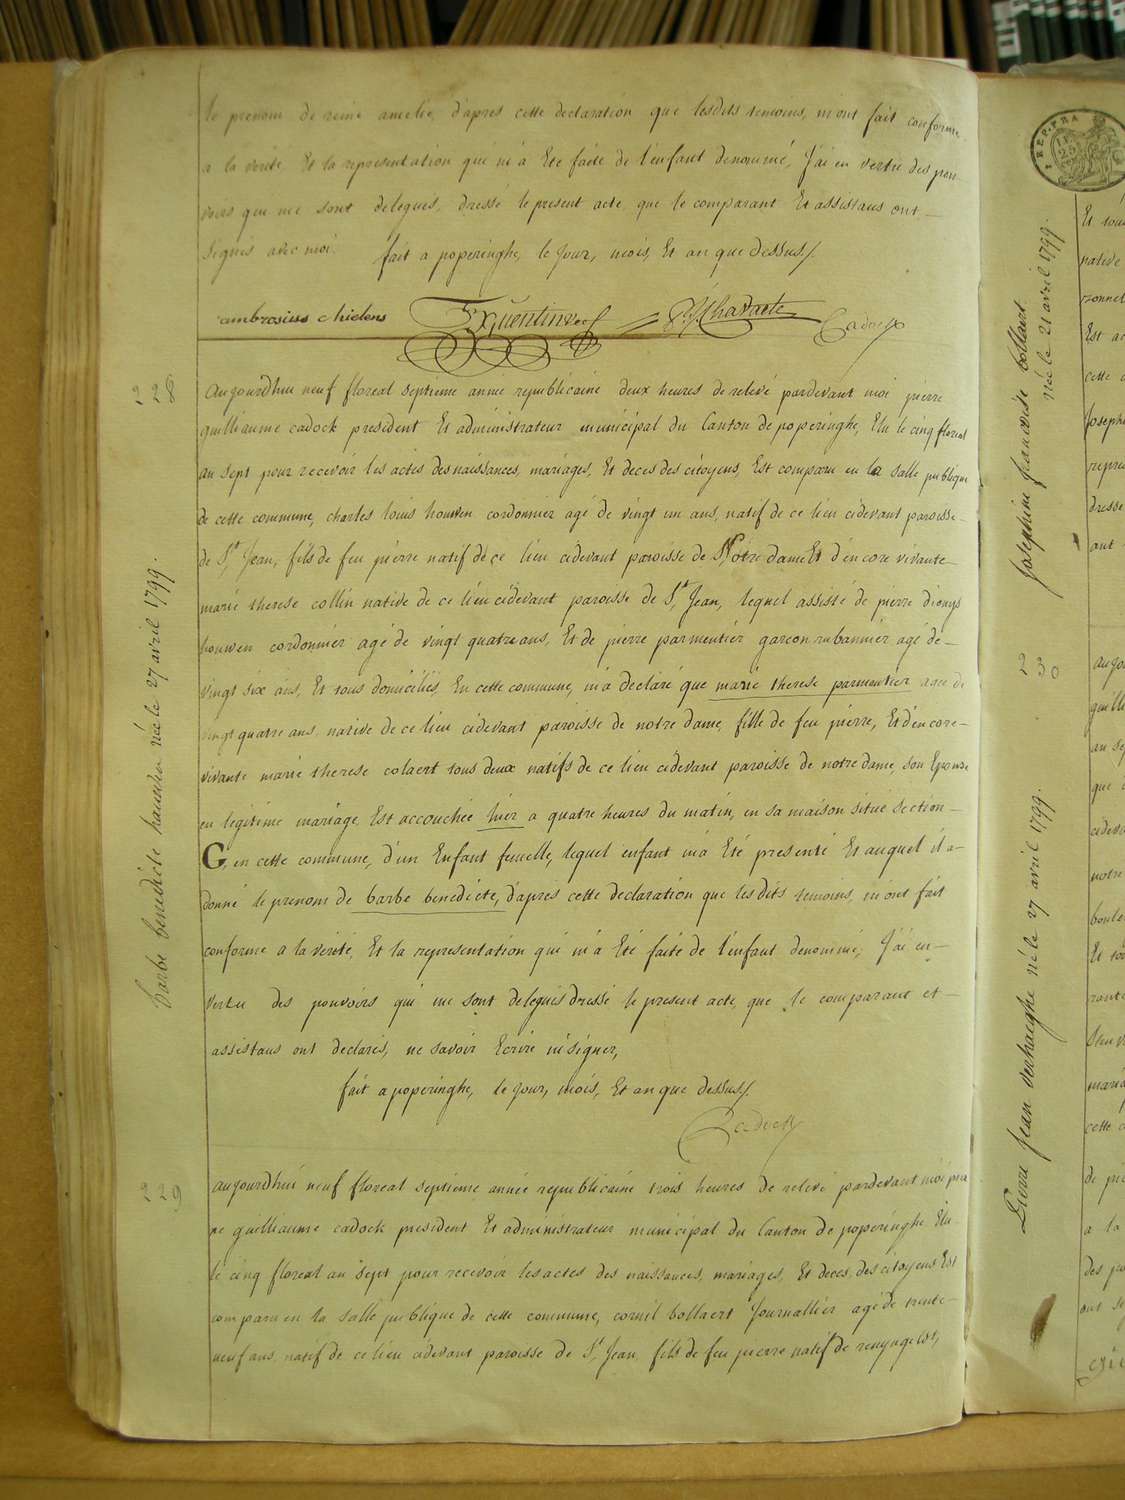 le prenom de reine amelie, d'apres cette declaration que lesdits temoins, m'ont fait conforme
a la verité Et la representation que m'a Eté faite de l'enfant denommé, J'ai en vertu des pou
voirs qui me sont delegués, dressé le present acte, que le comparant Et assistans ont
signés avec moi. fait a poperinghe, le Jour, mois, Et an que dessus/.
ambrosius chielens
Cadock
128
Aujourdhui neuf floreal septieme année republicaine deux heures de relevé pardevant moi pierre
guilliaume cadock president Et administrateur municipal du Canton de poperinghe, Elu le cinq floreal
an sept pour recevoir les actes des naissances, mariages, Et deces des citoyens, Est comparu en la salle publique
de cette commune, charles louis houwen cordonnier agé de vingt un ans, natif de ce lieu cidevant paroisse
de St Jean, fils de feu pierre natif de ce lieu cidevant paroisse de Notre dame Et d'encore vivante
marie therese collin native de ce lieu cidevant paroisse de St Jean, lequel assisté de pierre dionys
houwen cordonnier agé de vingt quatre ans, Et de pierre parmentier garcon rubannier agé de
vingt six ans, Et tous domiciliés, En cette commune, m'a declaré que marie therese parmentier agée de
vingt quatre ans native de ce lieu cidevant paroisse de notre dame, fille de feu pierre, Et d'encore
vivante marie therese colaert tous deux natifs de ce lieu cidevant paroisse de notre dame, son Epouse
en legitime mariage, Est accouchée hier a quatre heures du matin, en sa maison situé section
G, en cette commune, d'un Enfant femelle, lequel enfant m'a Eté presenté Et auquel il a
donné le prenom de barbe benedicte, d'apres cette declaration que lesdits temoins, m'ont fait
conforme a la verité, Et la representation qui m'a Eté faite de l'enfant denommé; J'ai en
vertu des pouvoirs qui me sont delegués dressé le present acte, que le comparant et
assistans ont declarés, ne savoir Ecrire ni signer,
fait a poperinghe, le Jour, mois, Et an que dessus/.
Cadock
barbe benedicte née le 27 avril 1799.
129
aujourdhui neuf floreal septieme année republicaine trois heures de relevé pardevant moi pier
re guilliaume cadock president Et administrateur municipal du Canton de poperinghe Elu
le cinq floreal an sept pour recevoir les actes des naissances, mariages, Et deces, des citoyens Est
comparu en la salle publique de cette commune, cornil bollaert Journallier agé de trente
neuf ans, natif de ce lieu cidevant paroisse de St Jean, fils de feu pierre natif de renyngelst,
REP. FRA
25
Josephine francoise bollaert
née le 21 avril 1799.
Et
native
Est
cette
Joseph
dressé
ont
130
Jean verhaeghe né le 27 avril 1799.
aujo
guill
an se
que
cidevant
notre
Et
marie
cette
de pie
a la
des po
ont